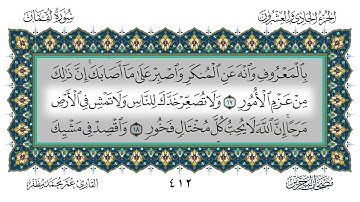 الجزء الحادي والعشرون
سورة لقمان
بِالْمَعْرُوفِ وَانْهَ عَنِ الْمُنكَرِ وَاصْبِرْ عَلَىٰ مَا أَصَابَكَ إِنَّ ذَٰلِكَ
مِنْ عَزْمِ الْأُمُورِ ١٧ وَلَا تُصَعِّرْ خَدَّكَ لِلنَّاسِ وَلَا تَمْشِ فِي الْأَرْضِ
مَرَحًا إِنَّ اللَّهَ لَا يُحِبُّ كُلَّ مُخْتَالٍ فَخُورٍ ١٨ وَاقْصِدْ فِي مَشْيِكَ
٤١٢
القارئ عمر محمد مظفر